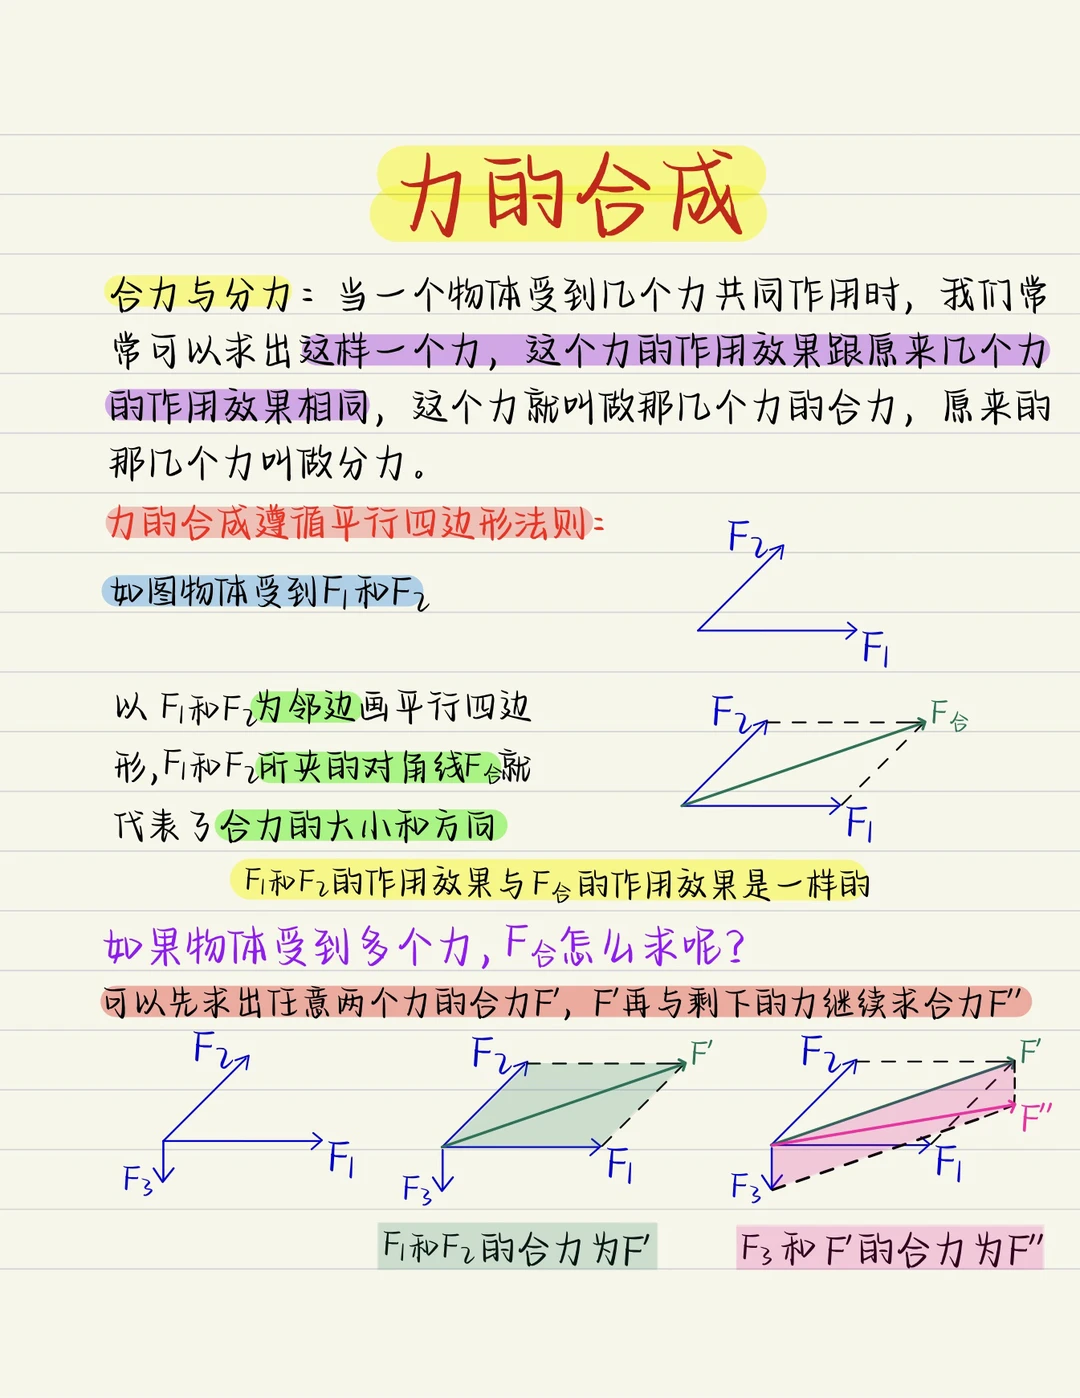 力的合成
合力与分力：当一个物体受到几个力共同作用时，我们常
常可以求出这样一个力，这个力的作用效果跟原来几个力
的作用效果相同，这个力就叫做那几个力的合力，原来的
那几个力叫做分力。
力的合成遵循平行四边形法则：
F₂
F₁
如图物体受到F₁和F₂
以F₁和F₂为邻边画平行四边
形,F₁和F₂所夹的对角线F合就
代表了合力的大小和方向
F₂
F合
F₁
F₁和F₂的作用效果与F合的作用效果是一样的
如果物体受到多个力,F合怎么求呢?
可以先求出任意两个力的合力F′，F′再与剩下的力继续求合力F″
F₂
F₁
F₃
F₂
F′
F₁
F₃
F₂
F′
F″
F₁
F₃
F₁和F₂的合力为F′
F₃和F′的合力为F″